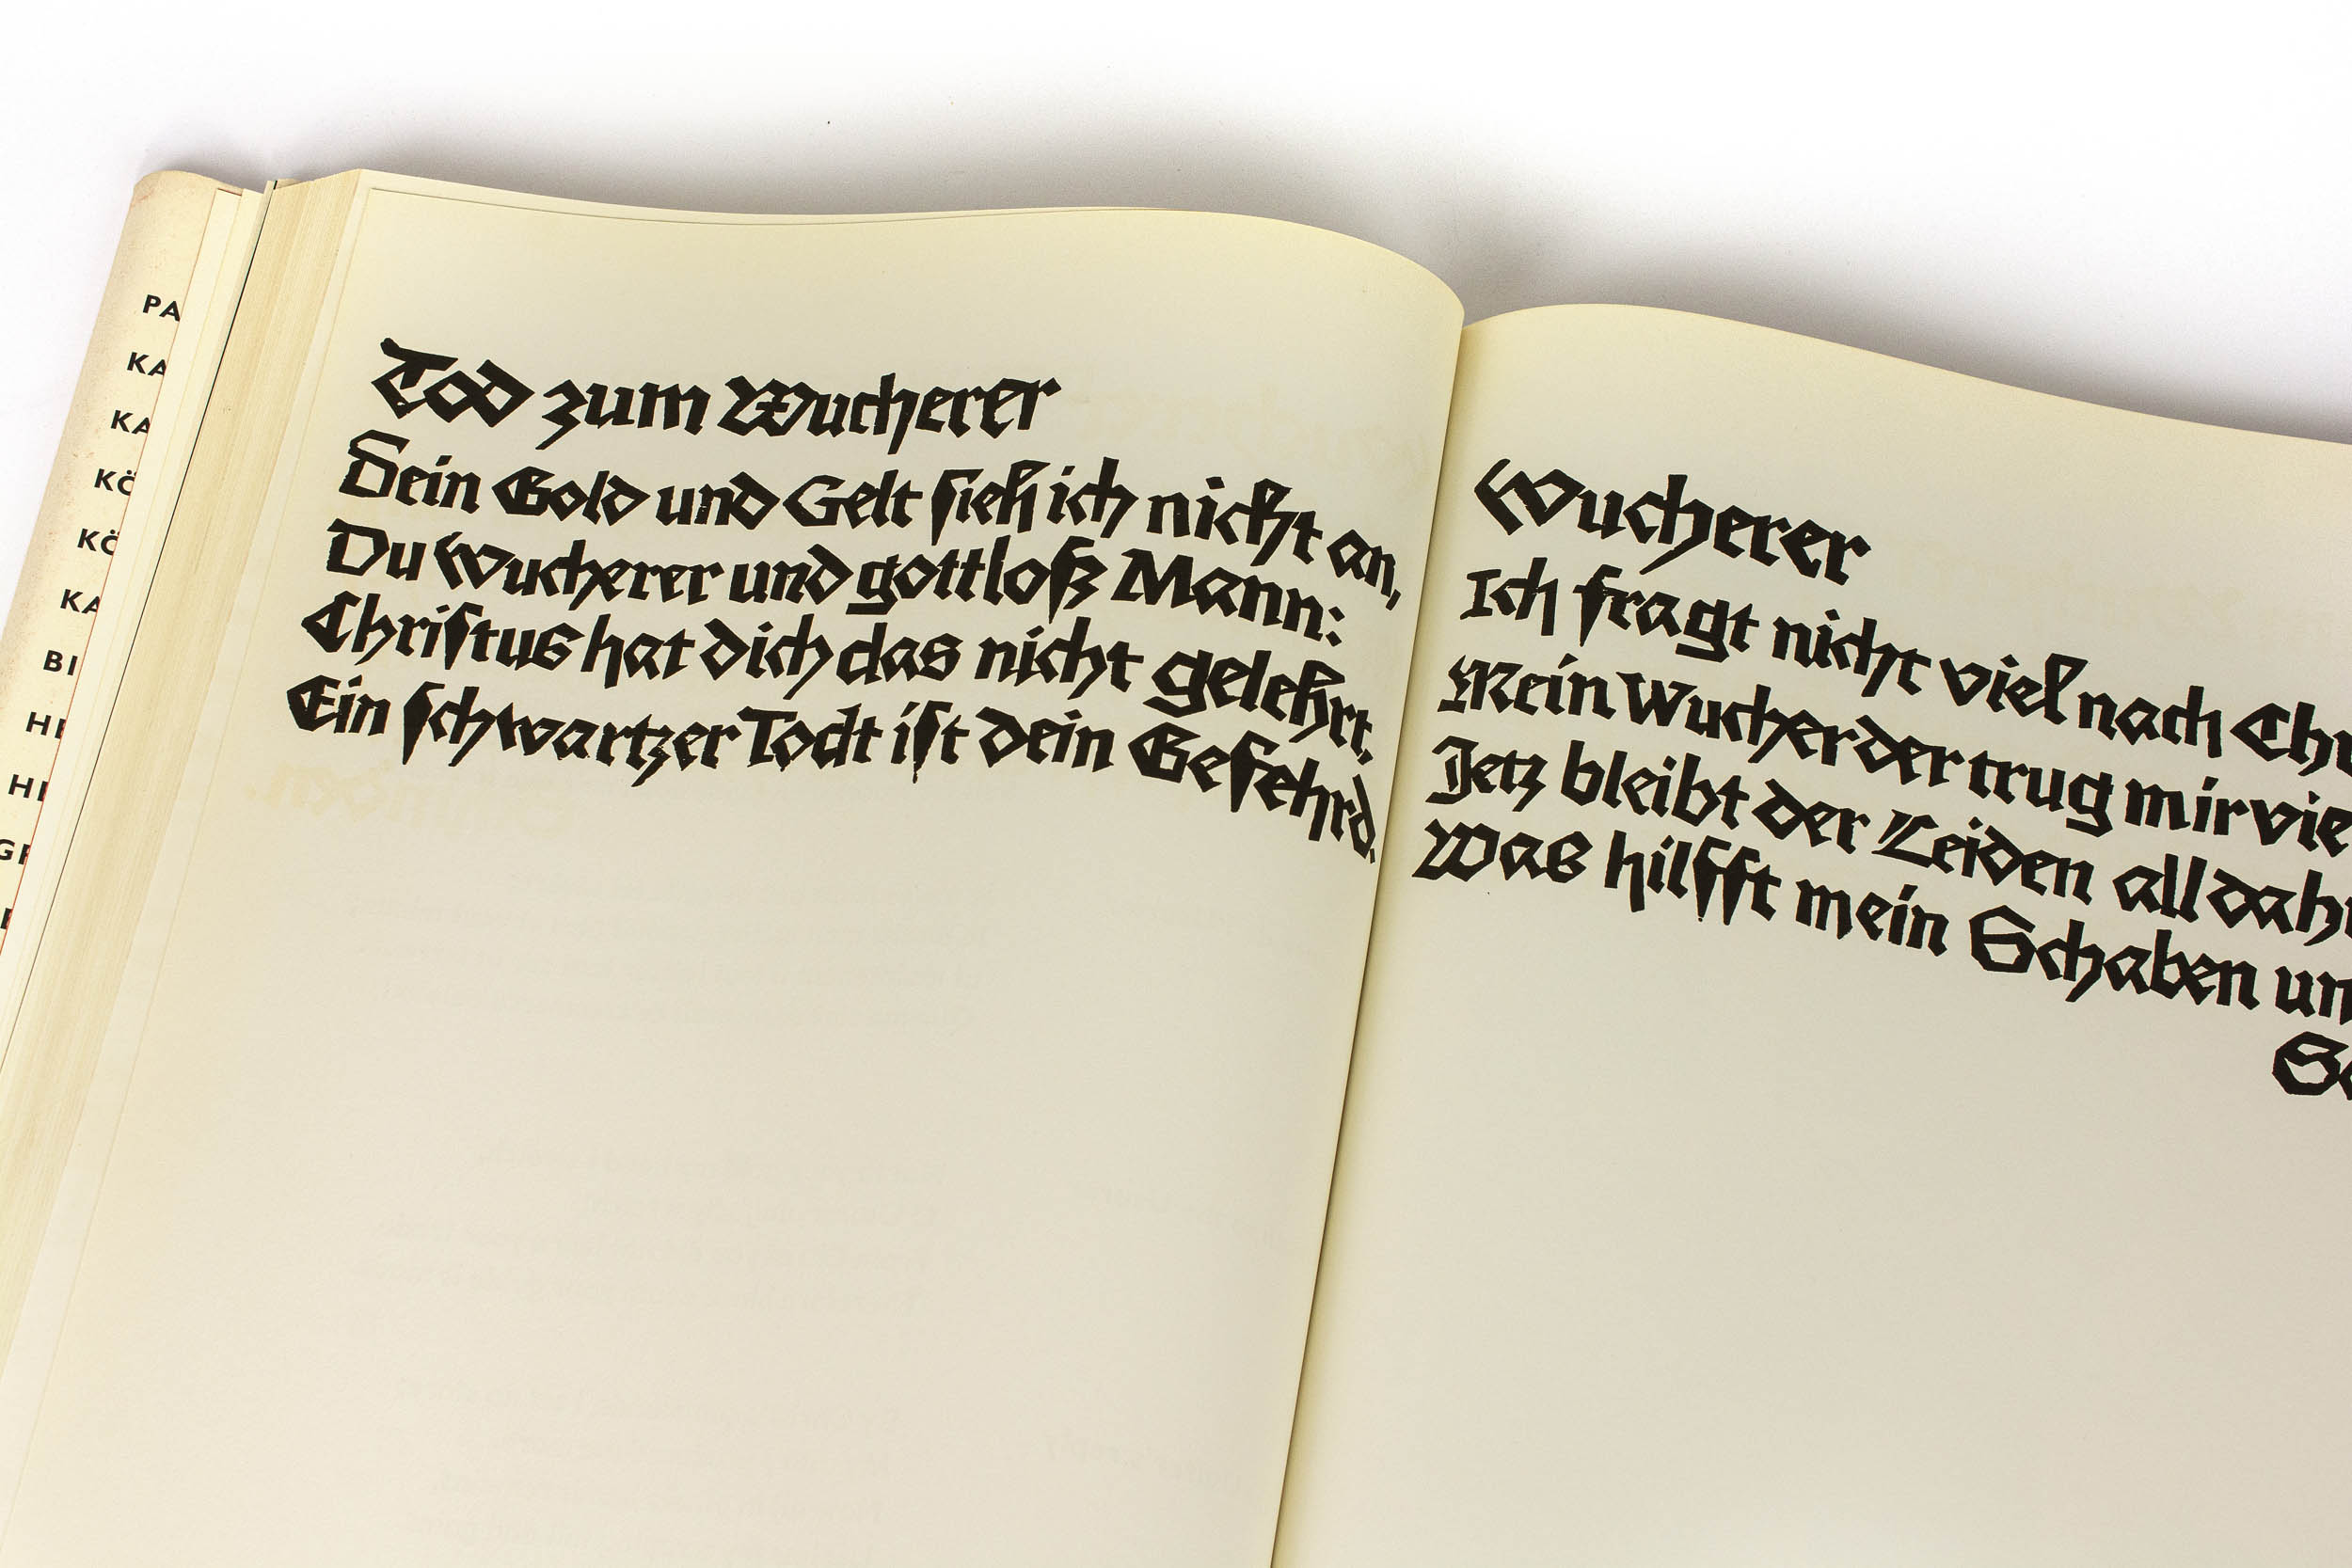 PA
KA
KA
KÖ
KÖ
KA
BI
HE
HE
GR
Tod zum Wucherer
Dein Gold und Gelt sieh ich nicht an,
Du Wucherer und gottloß Mann:
Christus hat dich das nicht gelehrt.
Ein schwartzer Todt ist dein Gefehrd.
Wucherer
Ich fragt nicht viel nach Chr
Mein Wucher der trug mir vie
Jetz bleibt der Leiden all dah
Was hilfft mein Schaben un
Sc